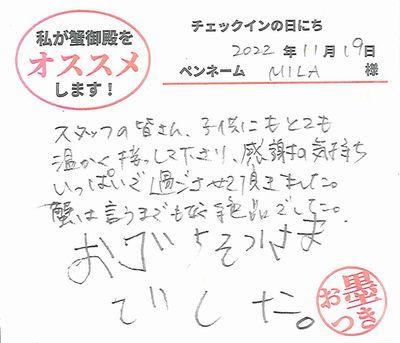 私が蟹御殿を
オススメ
します!
チェックインの日にち
2022年11月19日
ペンネーム MILA 様
スタッフの皆さん、子供にもとても
温かく接して下さり、感謝の気持ち
いっぱいで過ごさせて頂きました。
蟹は言うまでもなく絶品でした。
おごちそうさま
でした。
お墨つき